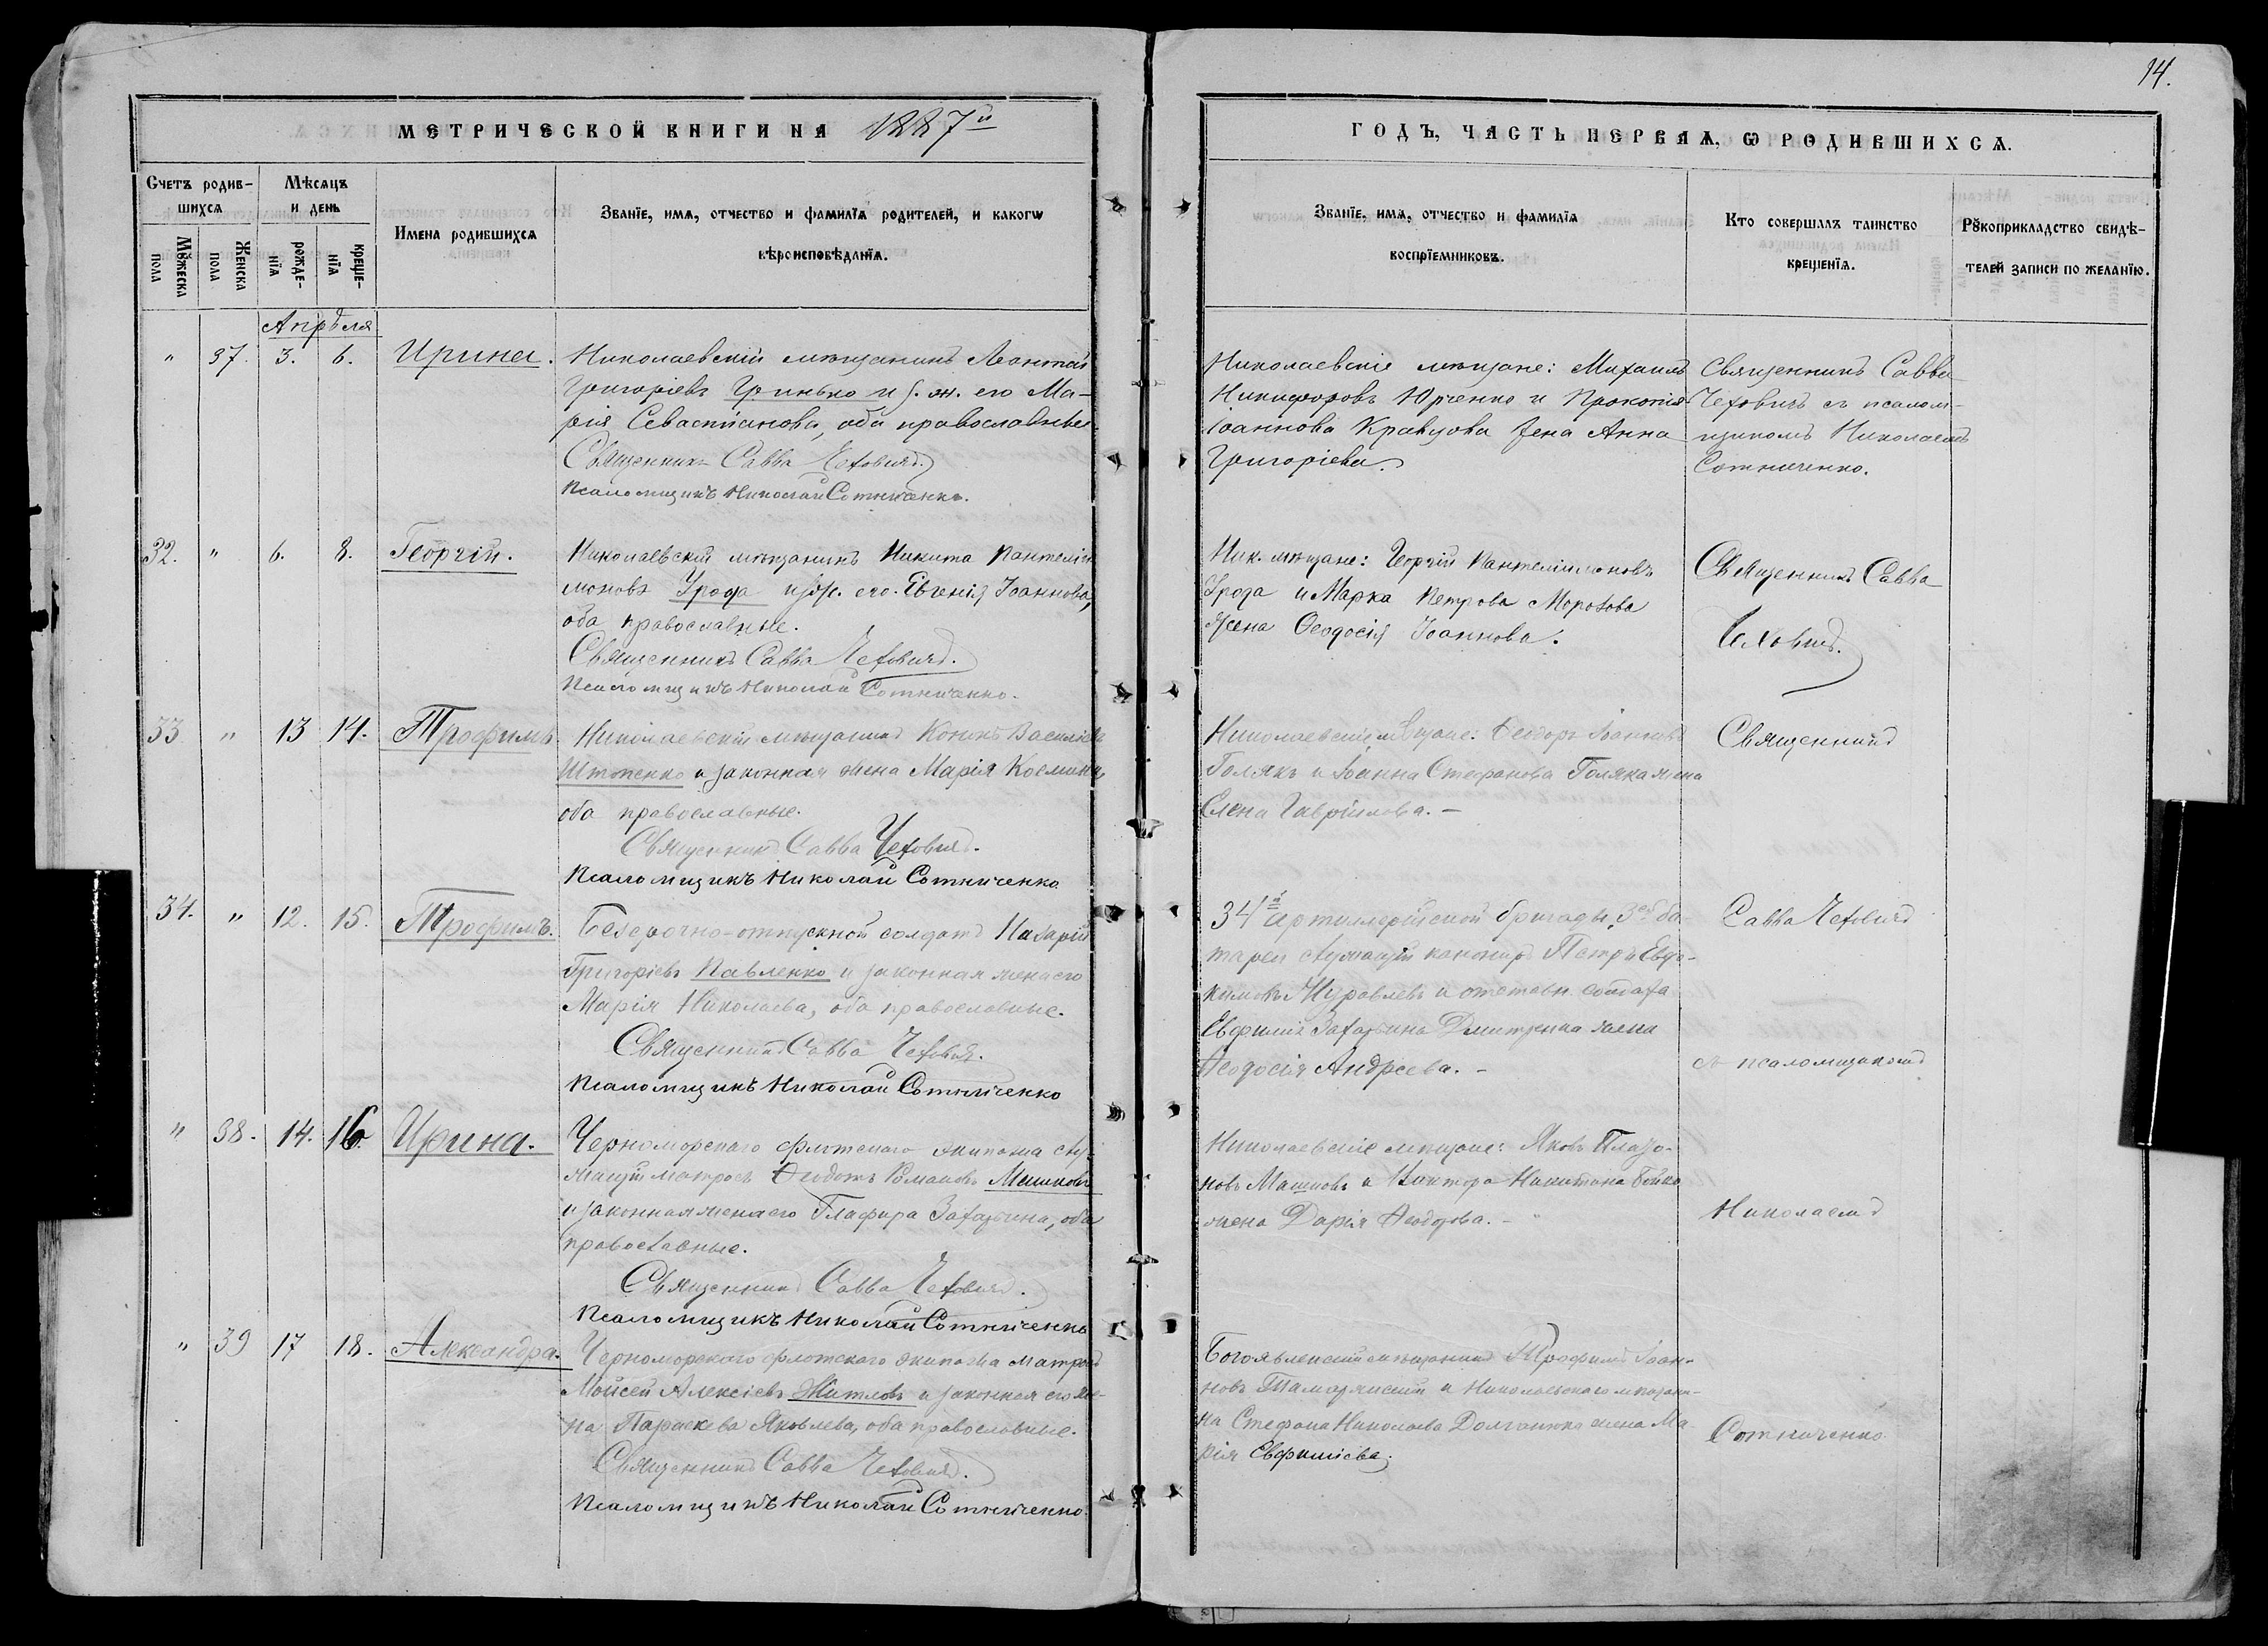 14.
МЕТРИЧЕСКОЙ КНИГИ НА 1887й
ГОДЪ, ЧАСТЬ ПЕРВАЯ, Ѡ РОДИВШИХСѦ.
Счетъ родив-
шихсѧ
Мꙋжеска
пола
Женска
пола
Мѣсѧцъ
и день
рожде-
нїѧ
креще-
нїѧ
Имена родившихсѧ
Званїе, имѧ, отчество и фамилїѧ родителей, и какогѡ
вѣроисповѣданїѧ.
Званїе, имѧ, отчество и фамилїѧ
воспрїемниковъ.
Кто совершалъ таинство
крещенїѧ.
Рꙋкоприкладство свидѣ-
телей записи по желанїю.
Апрѣля
" 37. 3. 6. Ирина.
Николаевскій мѣщанинъ Леонтій
Григоріевъ Гринько и з. ж. его Ма-
рія Севастіанова, оба православные
Священникъ Савва Чехович.
Псаломщикъ Николай Сотниченко.
Николаевскіе мѣщане: Михаилъ
Никифоровъ Юрченко и Прокопія
Іоаннова Кравцова жена Анна
Григоріева.
Священникъ Савва
Чеховичъ съ псалом-
щикомъ Николаемъ
Сотниченко.
32. " 6. 8. Георгій.
Николаевскій мѣщанинъ Никита Пантелій-
моновъ Урода и з. ж. его Евгенія Іоаннова,
оба православные.
Священникъ Савва Чехович.
Псаломщикъ Николай Сотниченко.
Ник. мѣщане: Георгій Пантелиимоновъ
Урода и Марка Петрова Морозова
жена Ѳеодосія Іоаннова.
Священникъ Савва
Чехович.
33 " 13 14. Трофимъ.
Николаевскій мѣщанинъ Кононъ Василіевъ
и законная жена Марія Космина,
оба православные.
Священникъ Савва Чехович.
Псаломщикъ Николай Сотниченко
Николаевскіе мѣщане: Ѳеодоръ Іоанновъ
Голякъ и Іоанна Стефанова Голяка жена
Елена Гавріилова. -
Священникъ
34. " 12. 15. Трофимъ.
Безсрочно-отпускной солдатъ Назарій
Григоріевъ Павленко и законная жена его
Марія Николаева, оба православные.
Священникъ Савва Чехович.
Псаломщикъ Николай Сотниченко
34й артиллерійской бригады, 3ей ба-
тареи служащій канониръ Петръ Евдо-
кимовъ Журавлевъ и отставн. солдата
Евфимія Захарьина Дмитренка жена
Ѳеодосія Андреева. -
Савва Чехович
съ псаломщикомъ
" 38. 14. 16. Ирина.
Черноморскаго флотскаго экипажа слу-
жащій матросъ Ѳеодотъ Романовъ Машновъ
и законная жена его Глафира Захарьина, оба
православные.
Священникъ Савва Чехович.
Псаломщикъ Николай Сотниченко
Николаевскіе мѣщане: Яковъ Плато-
новъ Машновъ и Виктора Никитина Бойко
жена Дарія Ѳеодорова. -
Николаемъ
" 39 17 18. Александра.
Черноморскаго флотскаго экипажа матросъ
Мойсей Алексіевъ Житловъ и законная его же-
на Параскева Яковлева, оба православные.
Священникъ Савва Чехович.
Псаломщикъ Николай Сотниченко.
Богоявленскій мѣщанинъ Трофимъ Іоан-
новъ и Николаевскаго мѣщани-
на Стефана Николаева жена Ма-
рія Евфиміева.
Сотниченко